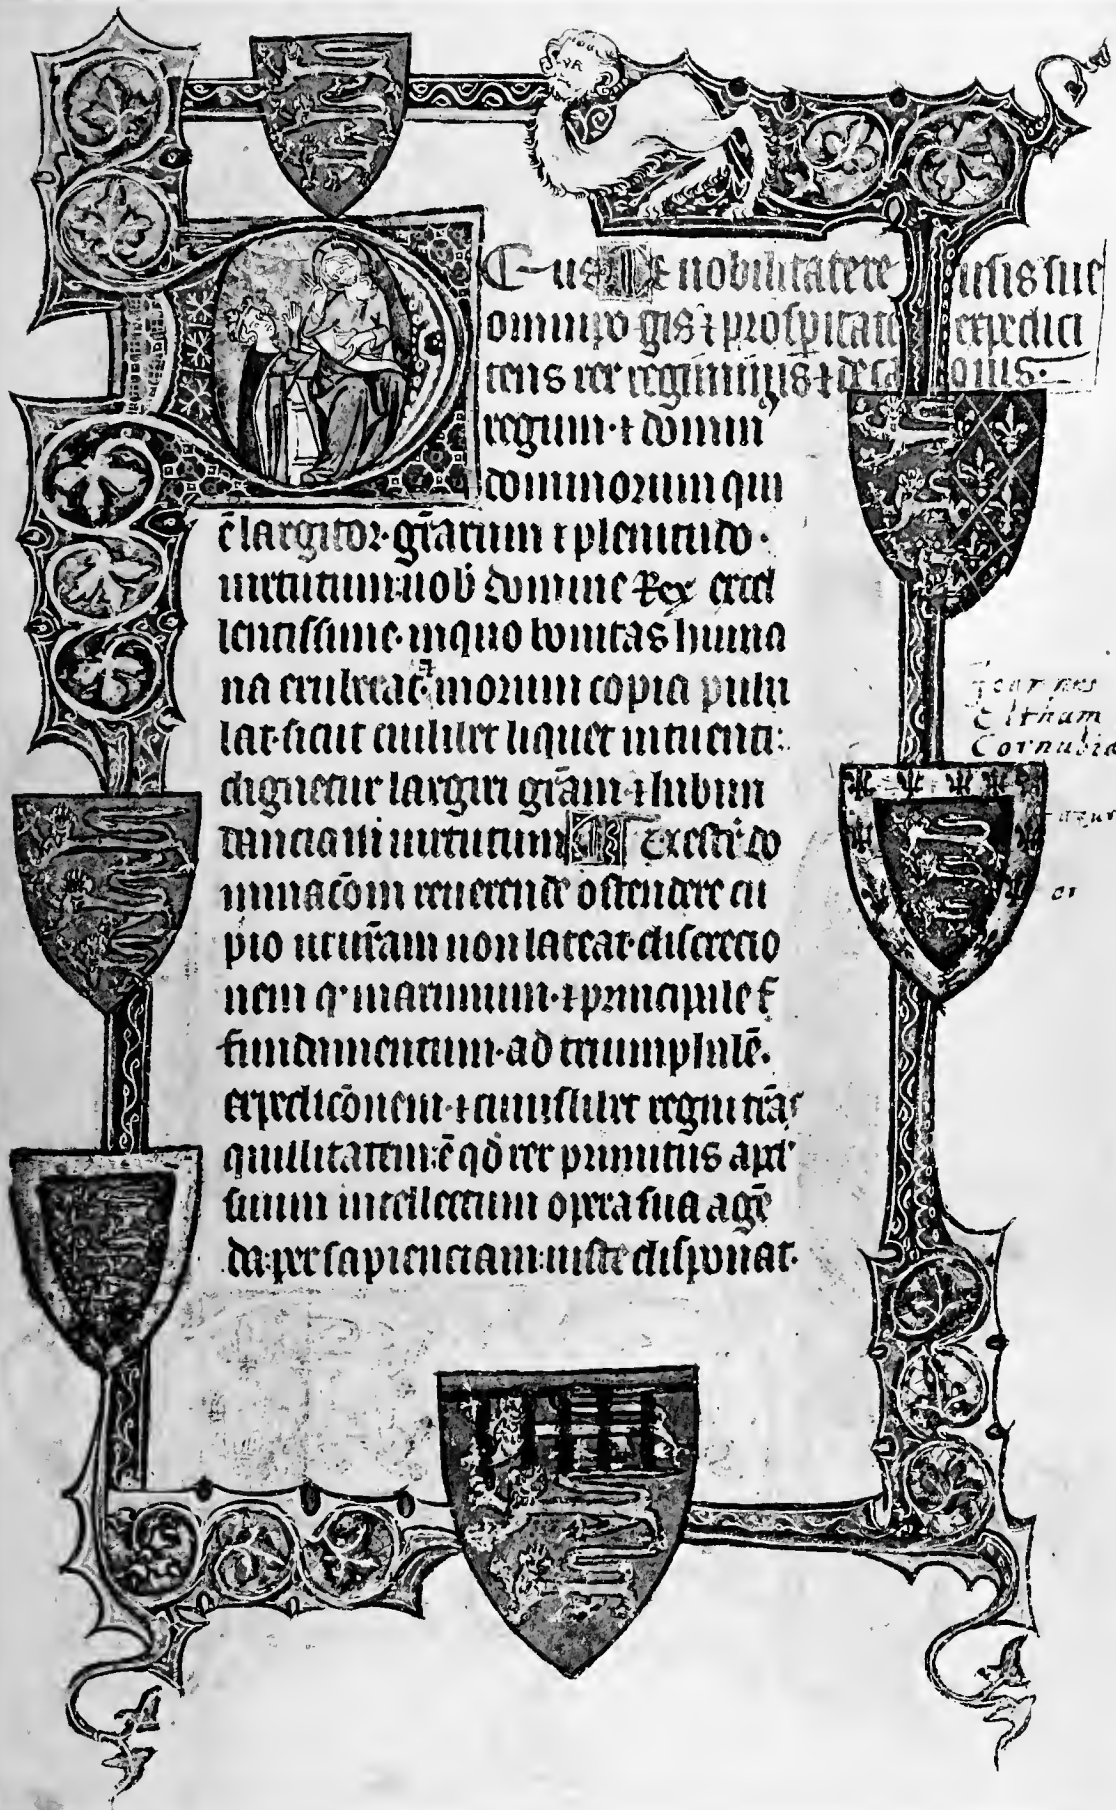 E-us De nobilitate re usis sue
omnipo gis ⁊ prosꝑitate expedici
tens rex regiminis ⁊ de ca onis.
regum· ⁊ domin'
dominorum qui
ē largitor· grārum ⁊ plenitudo·
uirtutum: uob' domine Rex excel
lentissime· in quo bonitas huma
na exuberat· ⁊ morum copia pulu
lat· sicut cuilibet liquet intuenti:
dignetur largiri grām· ⁊ habun
danciam uirtutum do
minacōm reuerende ostendere cu
pio ut urām non lateat· discrecio
nem q' maximum· ⁊ principale ē
fundamentum· ad triumphalē·
expedicōnem· ⁊ cuiuslibet regni trā
quillitatem: ē qd' rex primitus apd'
suum intellectum opera sua agē
da: per sapienciam: iuste disponat·
Joannes
Eltham
Cornubia
azur
or